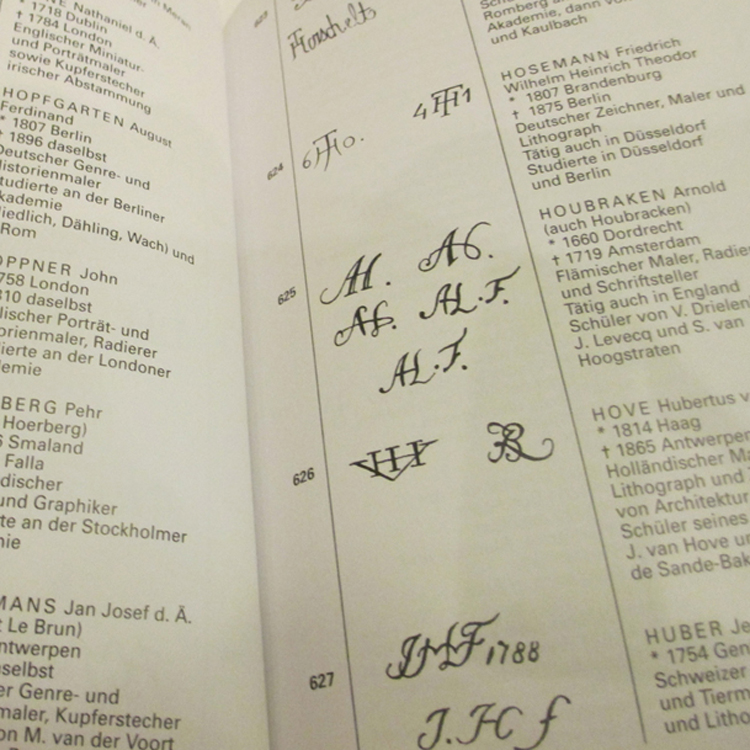 NE Nathaniel d. Ä.
* 1718 Dublin
† 1784 London
Englischer Miniatur-
und Porträtmaler
sowie Kupferstecher
irischer Abstammung
HOPFGARTEN August
Ferdinand
* 1807 Berlin
† 1896 daselbst
Deutscher Genre- und
Historienmaler
tudierte an der Berliner
kademie
iedlich, Dähling, Wach) und
Rom
OPPNER John
758 London
810 daselbst
lischer Porträt- und
orienmaler, Radierer
ierte an der Londoner
demie
BERG Pehr
Hoerberg)
6 Smaland
Falla
discher
und Graphiker
te an der Stockholmer
nie
MANS Jan Josef d. Ä.
t Le Brun)
ntwerpen
aselbst
er Genre- und
maler, Kupferstecher
on M. van der Voort
623
Horschelt
624
6 HO.
4 TH 1
625
AH. AB.
AB. AL.F.
AL.F.
626
VH R
627
JHF 1788
J.HC f
Romberg a
Akademie, dann vo
und Kaulbach
HOSEMANN Friedrich
Wilhelm Heinrich Theodor
* 1807 Brandenburg
† 1875 Berlin
Deutscher Zeichner, Maler und
Lithograph
Tätig auch in Düsseldorf
Studierte in Düsseldorf
und Berlin
HOUBRAKEN Arnold
(auch Houbracken)
* 1660 Dordrecht
† 1719 Amsterdam
Flämischer Maler, Radier
und Schriftsteller
Tätig auch in England
Schüler von V. Drielen
J. Levecq und S. van
Hoogstraten
HOVE Hubertus v
* 1814 Haag
† 1865 Antwerpen
Holländischer Ma
Lithograph und
von Architektur
Schüler seines
J. van Hove un
de Sande-Bak
HUBER Je
* 1754 Gen
Schweizer
und Tierm
und Litho